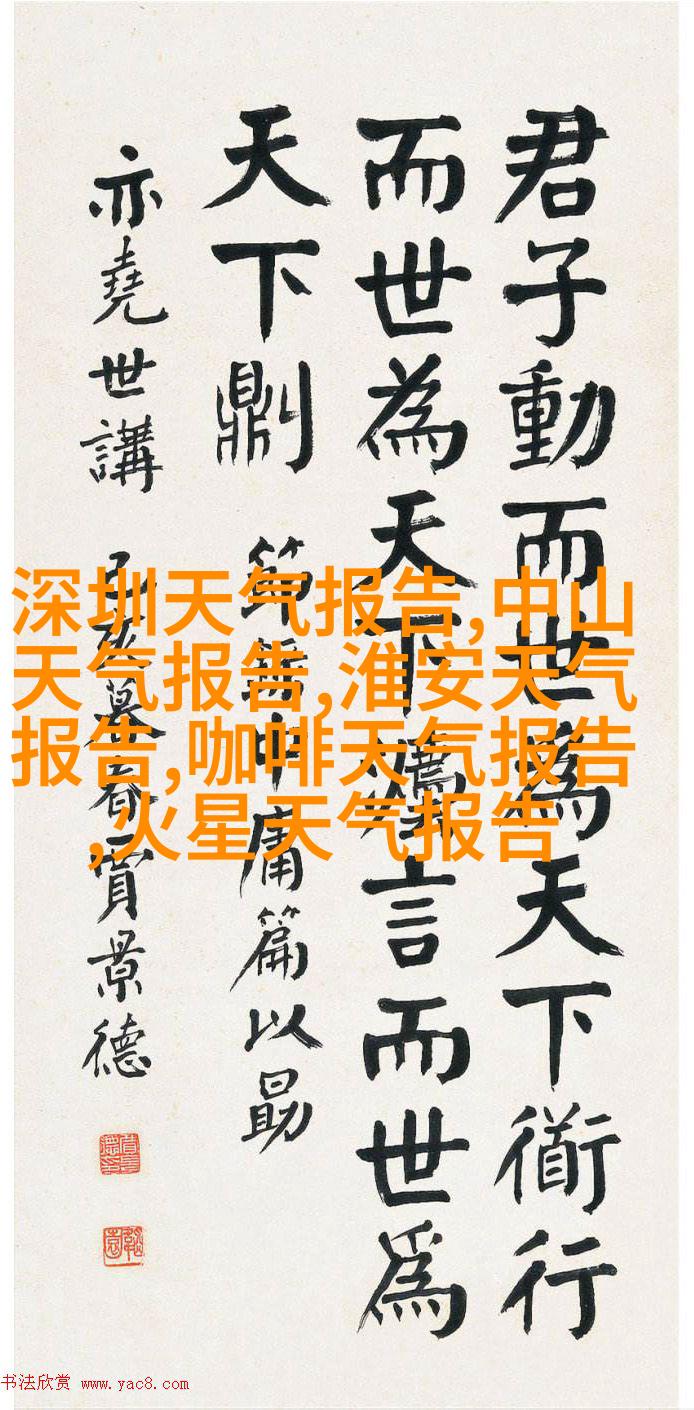 君子動而世為天下衜行
而世為天下灋言而世為
天下 節錄中庸篇以勗
亦堯世講 暮春賈景德
深圳天气报告,中山
天气报告,淮安天气
报告,咖啡天气报告
,火星天气报告
书法欣赏 www.yac8.com